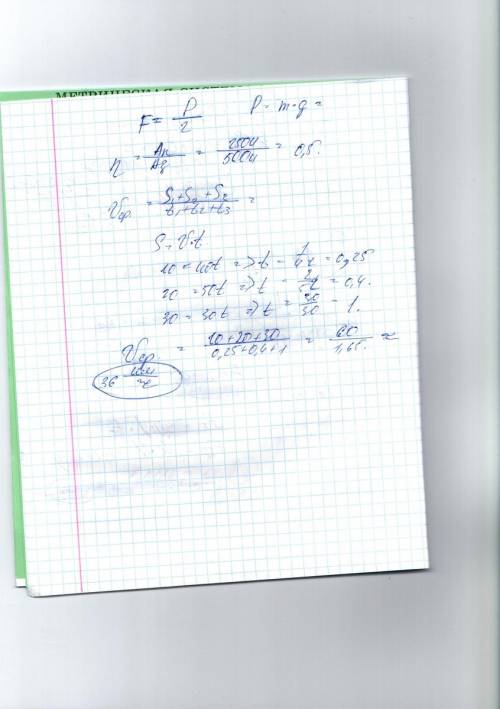 МЕТРИЧЕСКАЯ
F = P/2 P = m·g =
η = Aп/Aз = 2504/5004 = 0,5.
Vср. = S₁+S₂+S₃/t₁+t₂+t₃ =
S = V·t
10 = 40t => t = 1/4 ч = 0,25
20 = 50t => t = 2/5 ч = 0,4.
30 = 30t => t = 30/30 = 1.
Vср. = 10+20+30/0,25+0,4+1 = 60/1,65. ≈
36 км/ч